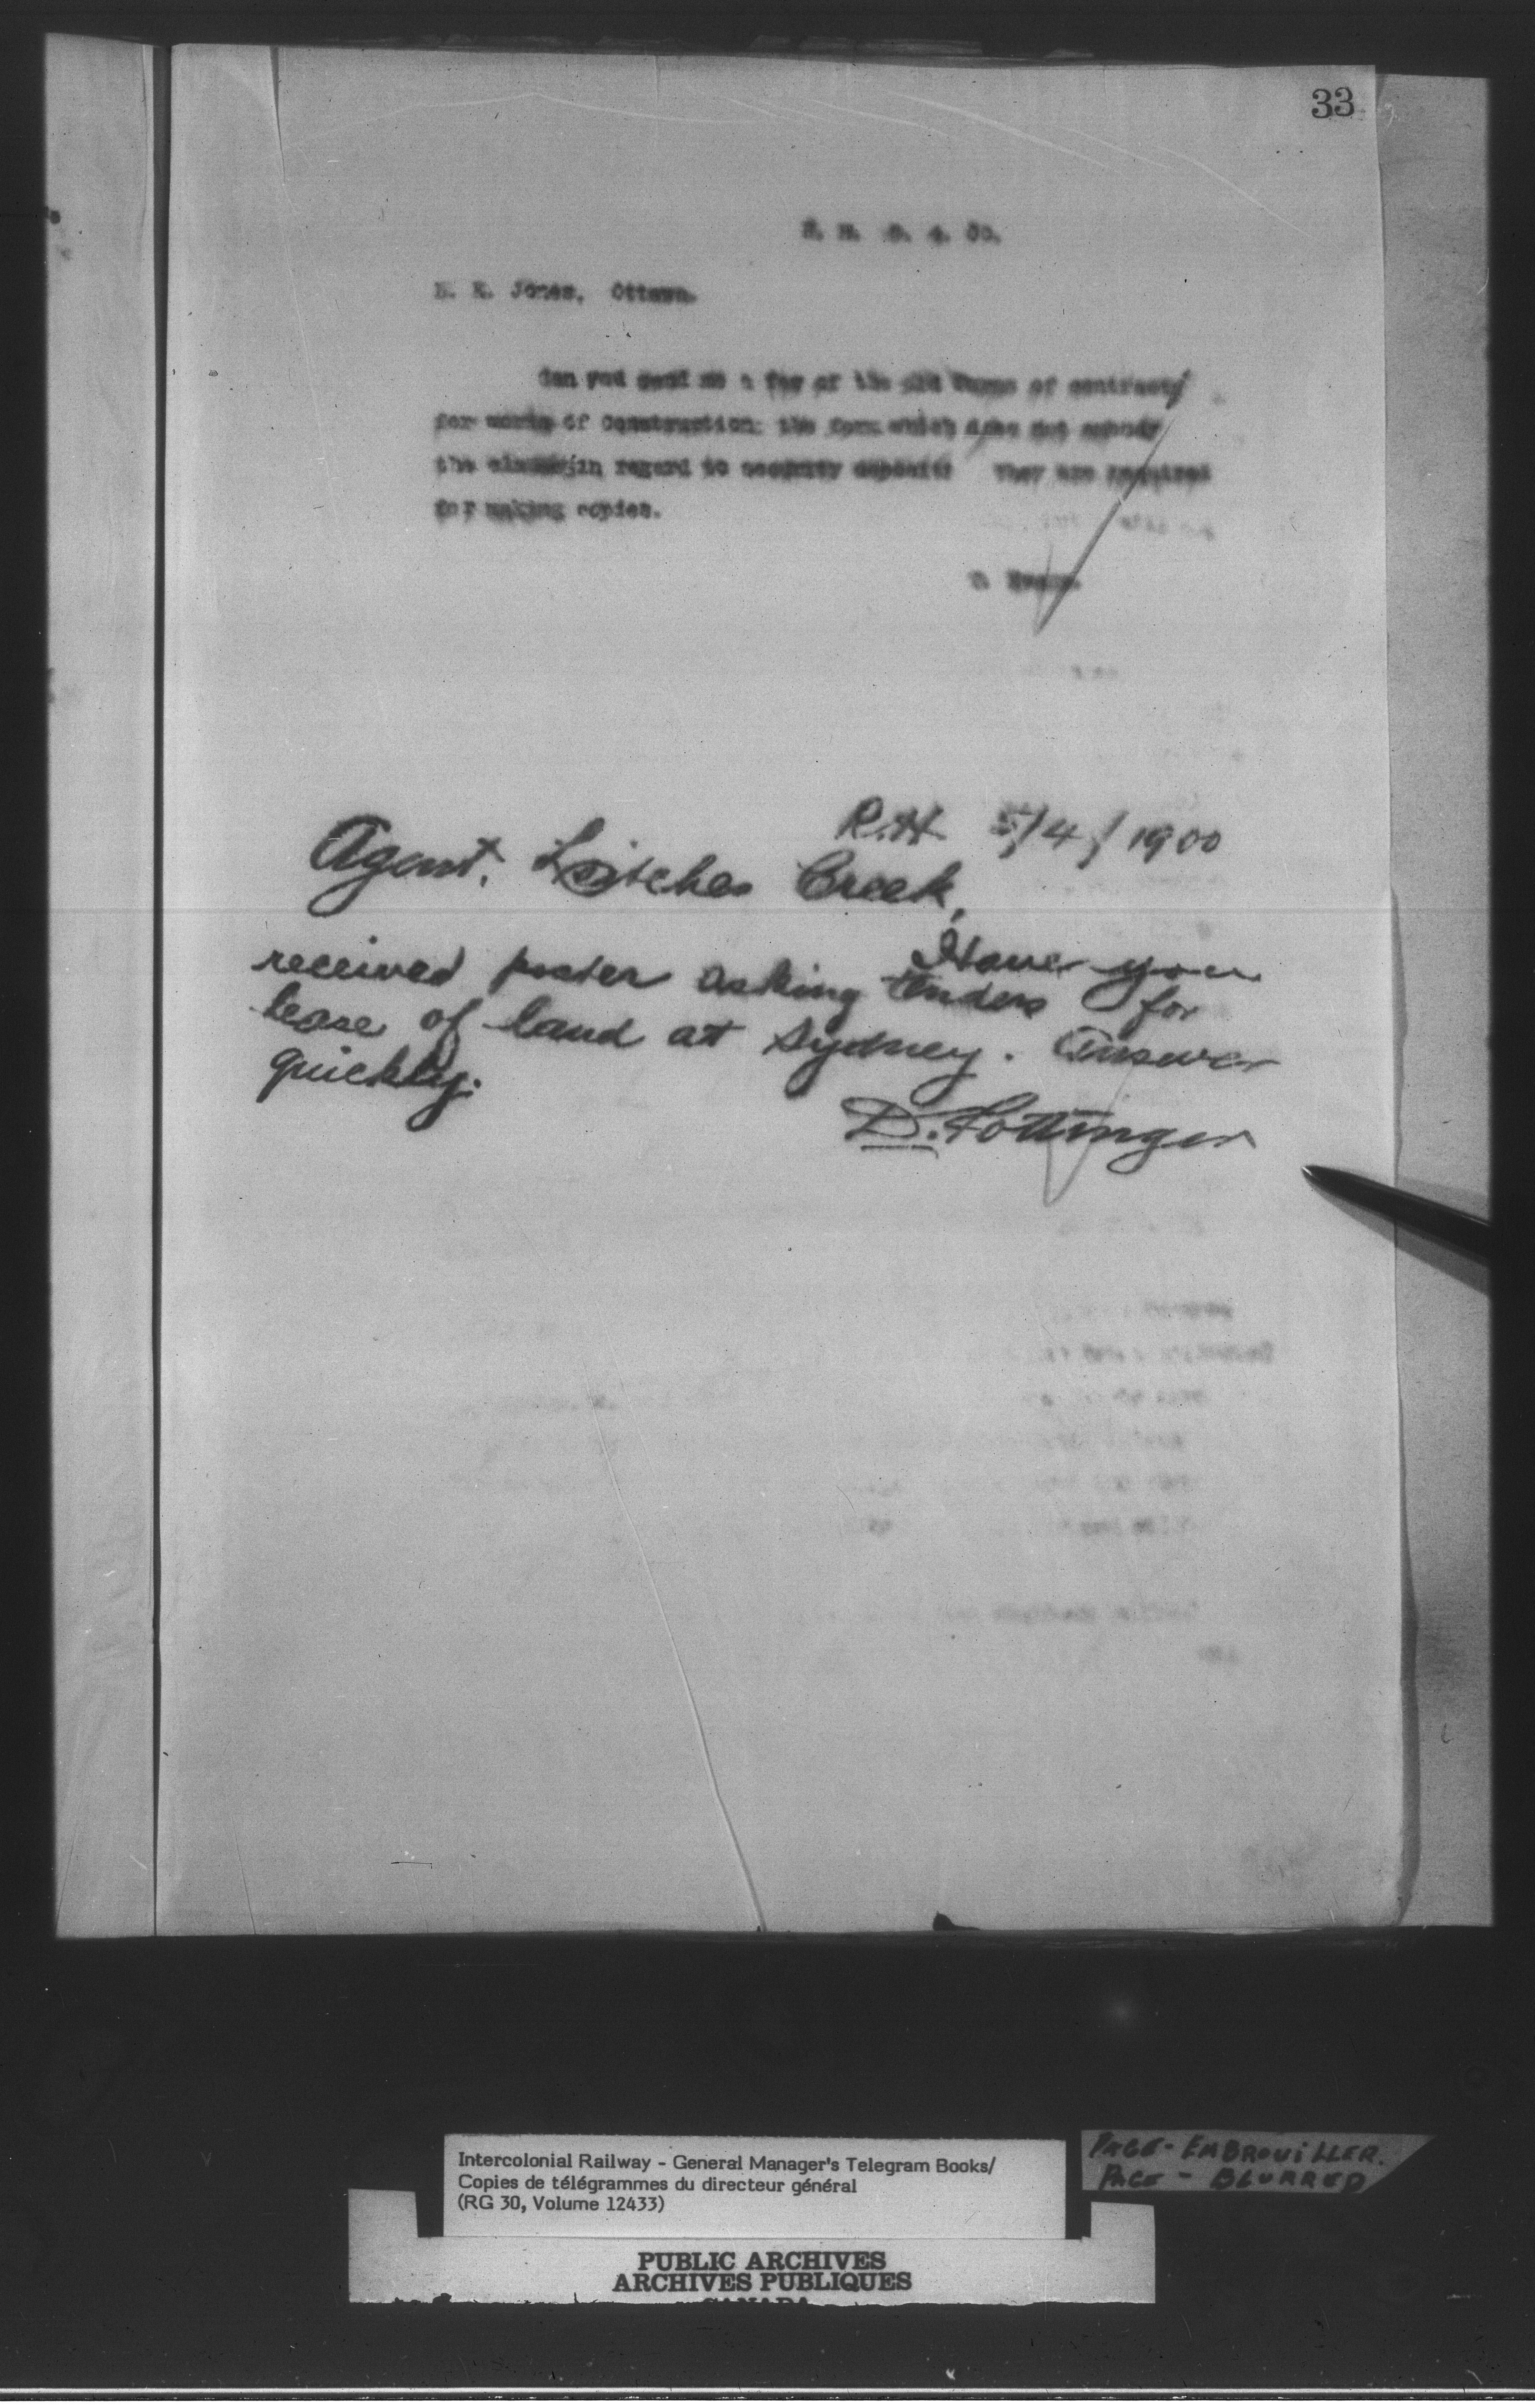 33
L. K. Jones, Ottawa.
Can you send me a few of the old forms of contract
for works of Construction: the form which does not embody
the clause in regard to security deposits They are required
for making copies.
R.H. 5/4/1900
Agent, Leitches Creek,
Have you
received poster asking tenders for
lease of land at Sydney. Answer
quickly.
D. Pottinger
Intercolonial Railway - General Manager's Telegram Books/
Copies de télégrammes du directeur général
(RG 30, Volume 12433)
PAGE - EMBROUILLER.
PAGE - BLURRED
PUBLIC ARCHIVES
ARCHIVES PUBLIQUES
CANADA